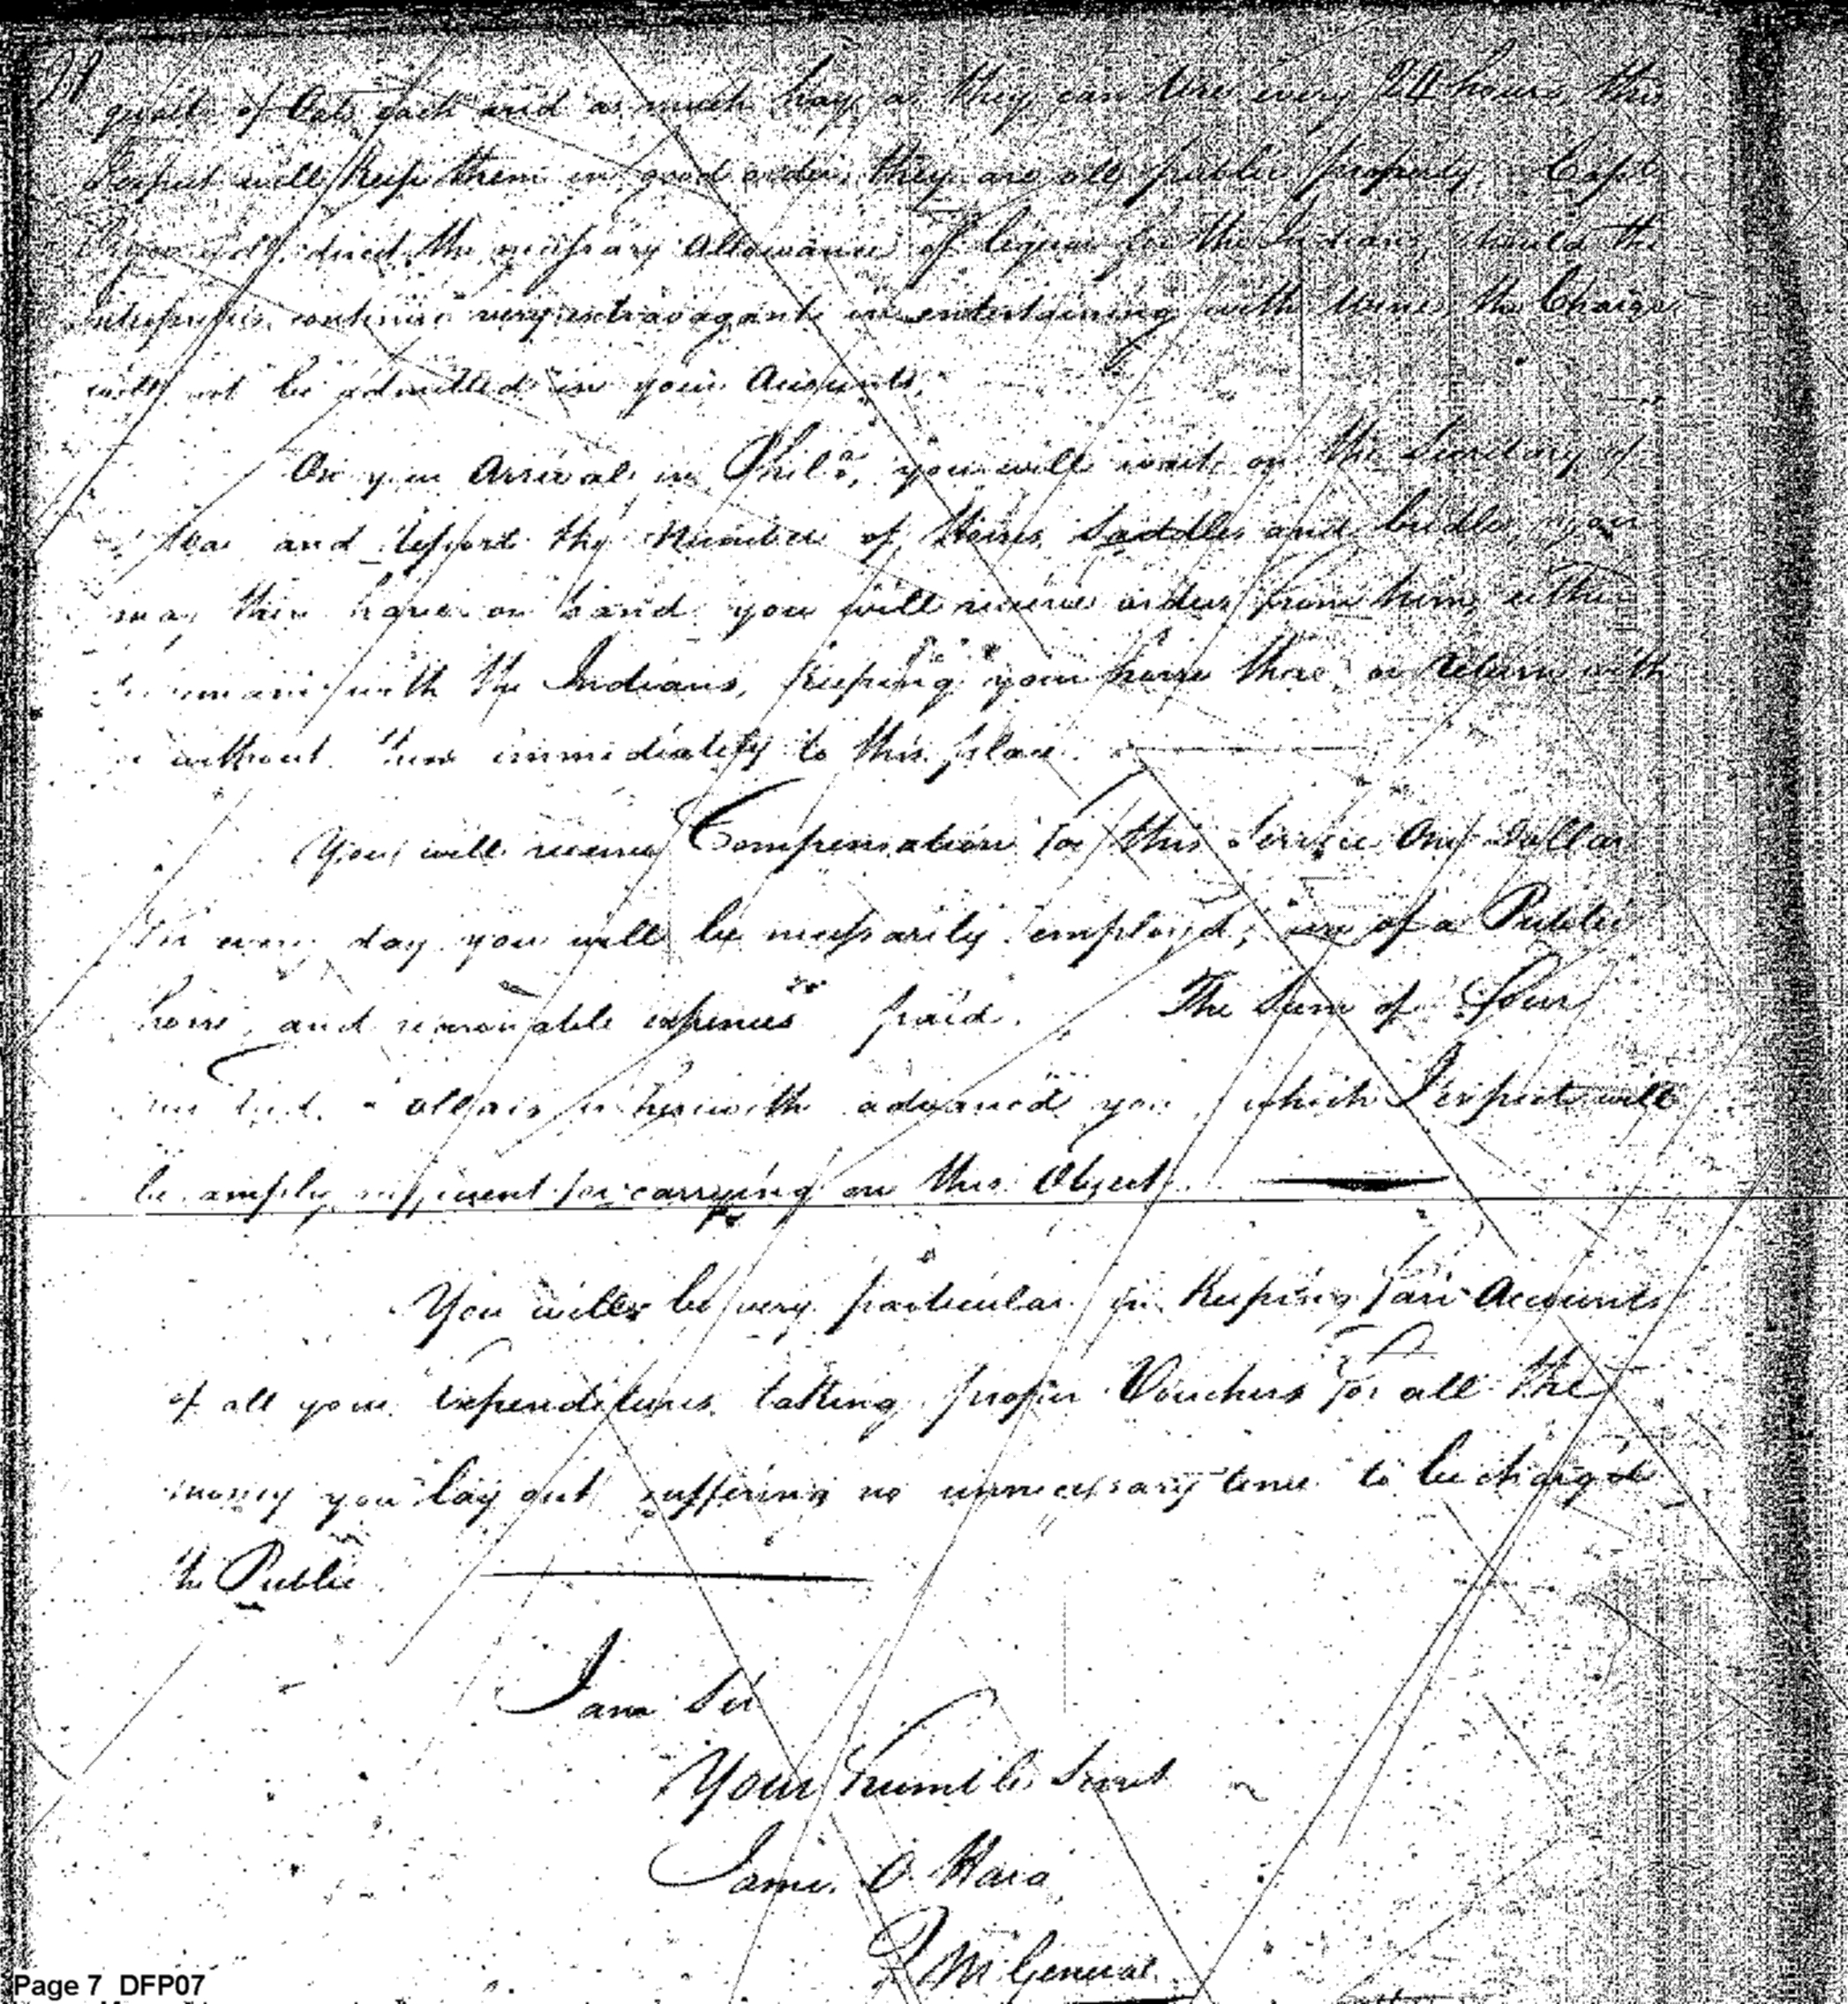 quarts of Oats each and as much hay as they can use every 24 hours, this
I expect will keep them in good order, they are all public property. Capt.
direct the necessary allowance of liquor for the Indians, should the
continue very extravagant in entertaining with wines, the Charge
will not be admitted in your Accounts.
On your Arrival in Phila, you will wait on the Secretary of
War and report the Number of Horses Saddles and bridles, you
may then have on hand you will receive orders from him, either
to remain with the Indians, keeping your horses there or return with
or without them immediately to this place.
You will receive Compensation for this Service One Dollar
for every day you will be necessarily employed; use of a Public
horse, and reasonable expences paid. The Sum of four
hundred dollars is herewith advanced you, which I expect will
be amply sufficient for carrying on this Object.
You will be very particular in Keeping fair Accounts
of all your Expenditures taking proper Vouchers for all the
money you lay out suffering no unnecessary time to be charged
the Public.
I am Sir
Your humble Servt
James O Hara
Q M General
Page 7 DFP07